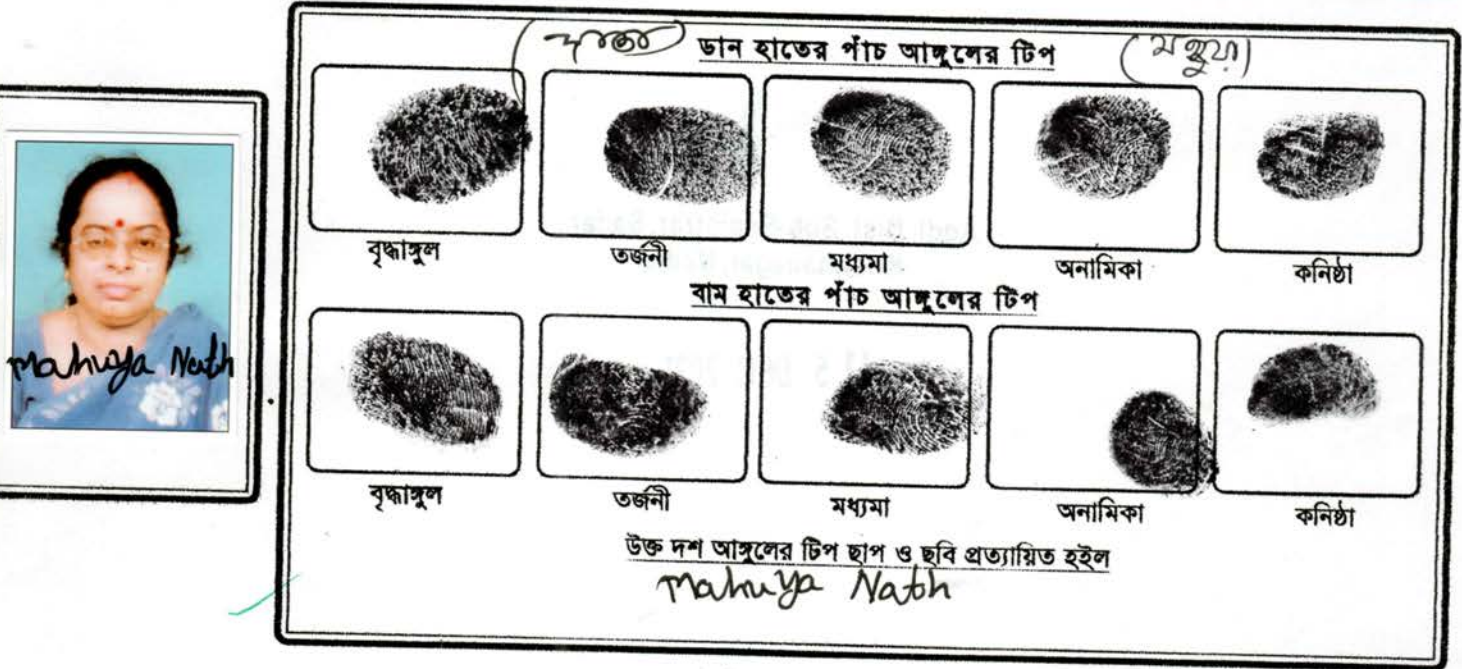 (দাতা) ডান হাতের পাঁচ আঙ্গুলের টিপ (মহুয়া)
বৃদ্ধাঙ্গুল তর্জনী মধ্যমা অনামিকা কনিষ্ঠা
বাম হাতের পাঁচ আঙ্গুলের টিপ
Mahuya Nath
বৃদ্ধাঙ্গুল তর্জনী মধ্যমা অনামিকা কনিষ্ঠা
উক্ত দশ আঙ্গুলের টিপ ছাপ ও ছবি প্রত্যায়িত হইল
Mahuya Nath